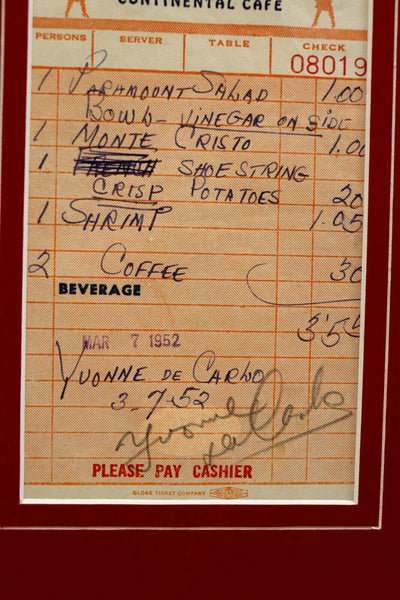 CONTINENTAL CAFE
PERSONS SERVER TABLE CHECK
08019
1 PARAMOUNT SALAD 1.00
BOWL - VINEGAR ON SIDE
1 MONTE CRISTO 1.00
1 FRENCH SHOESTRING
CRISP POTATOES 20
1 SHRIMP 1.05
2 COFFEE 30
BEVERAGE
3.55
MAR 7 1952
YVONNE DE CARLO
3-7-52
Yvonne de Carlo
PLEASE PAY CASHIER
GLOBE TICKET COMPANY